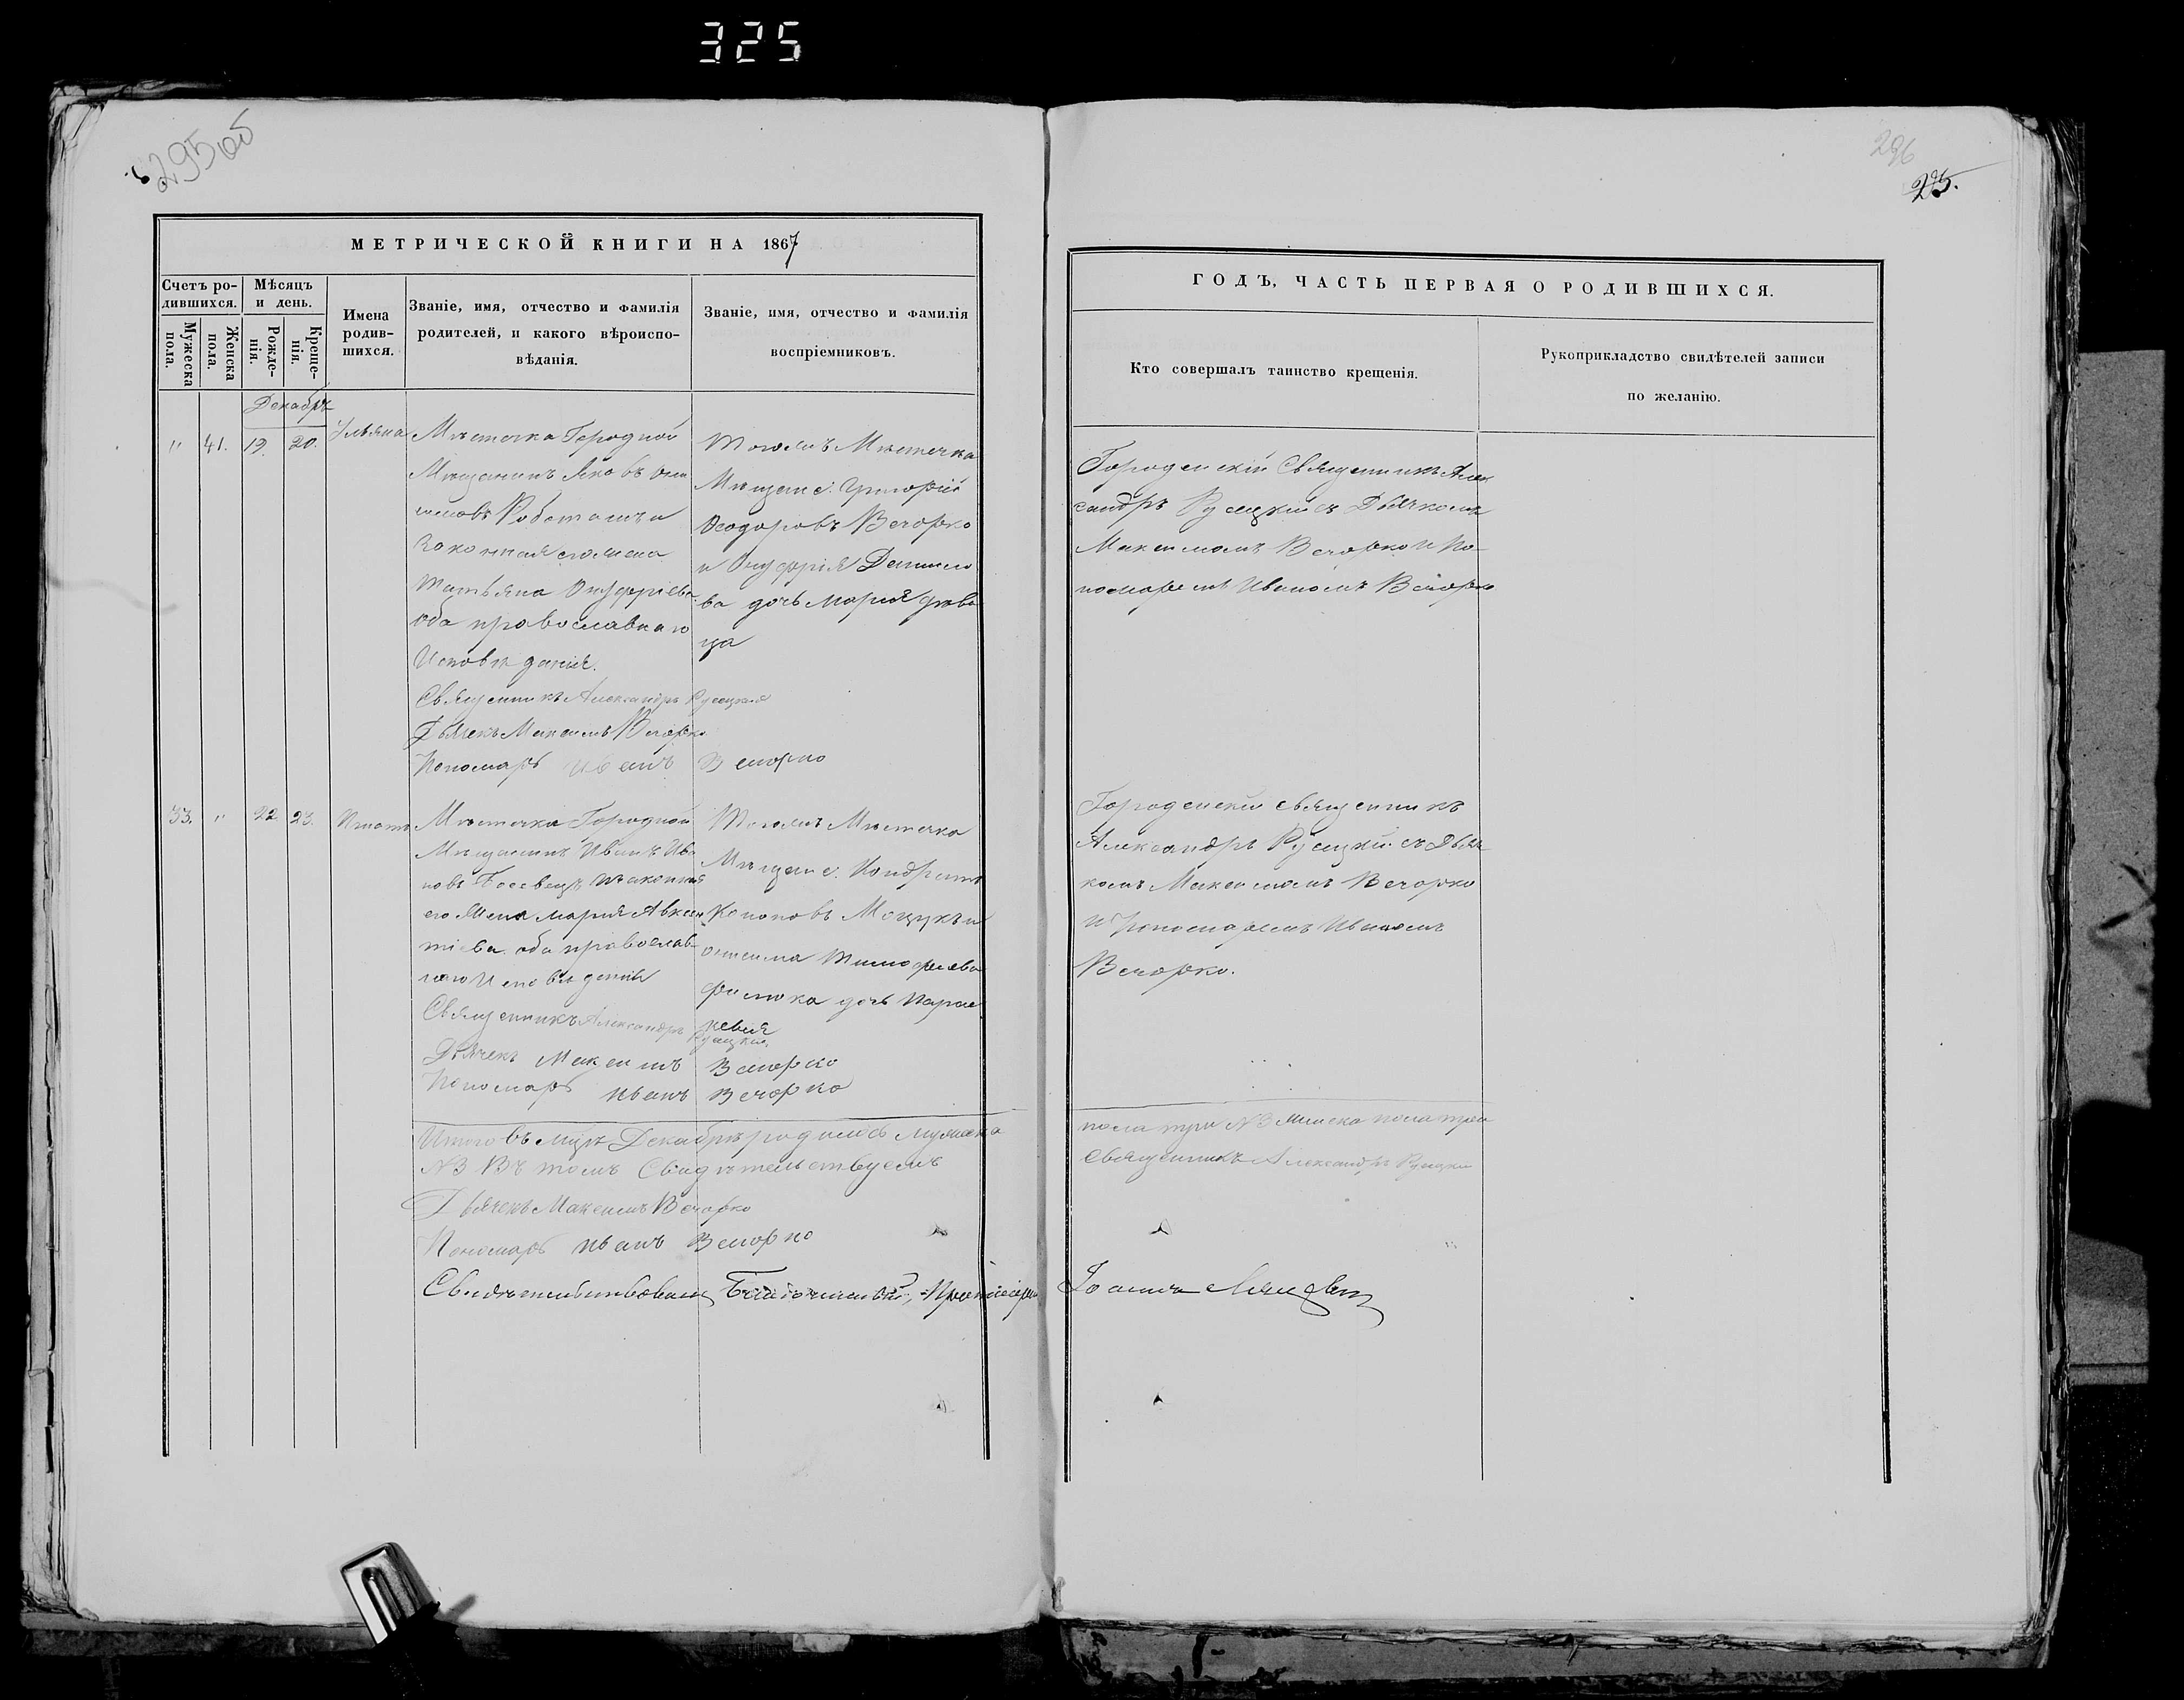 325
295 об
296
25.
МЕТРИЧЕСКОЙ КНИГИ НА 1867
Счетъ ро-
дившихся.
Мужеска
пола.
Женска
пола.
Мѣсяцъ
и день.
Рожде-
нія.
Креще-
нія.
Имена
родив-
шихся.
Званіе, имя, отчество и фамилія
родителей, и какого вѣроиспо-
вѣданія.
Званіе, имя, отчество и фамилія
воспріемниковъ.
Декабрь
" 41. 19. 20.
Ульяна
Мѣстечка Городной
Мѣщанинъ Яковъ Они
симовъ и
Законная его жена
Татьяна Онуфріева
оба православнаго
Исповѣданія.
Священникъ Александръ Русецкій
Дьячекъ Максимъ Вечорко
Пономарь Иванъ Вечорко
Тогожъ Мѣстечка
Мѣщане: Григорій
Ѳеодоровъ Вечорко
и Онуфрія Данило
ва дочь Марія дѣви
ца
33. " 22. 23.
Игнатъ
Мѣстечка Городной
Мѣщанинъ Иванъ Ива
новъ и законная
его жена Марія Авксен
тіева оба православ-
наго Исповѣданія
Священникъ Александръ Русецкій
Дьячекъ Максимъ Вечорко
Пономарь Иванъ Вечорко
Тогожъ Мѣстечка
Мѣщане: Кондратъ
Кононовъ и
Тимофеева
дочь Парас
кевія
Итого въ мцѣ Декабрѣ родилось мужеска
№3 Въ томъ Свидѣтельствуемъ
Дьячекъ Максимъ Вечорко
Пономарь Иванъ Вечорко
Свидѣтельствовалъ Благочинный, Протоіерей
ГОДЪ, ЧАСТЬ ПЕРВАЯ О РОДИВШИХСЯ.
Кто совершалъ таинство крещенія.
Рукоприкладство свидѣтелей записи
по желанію.
Городенскій Священникъ Алек
сандръ Русецкій съ Дьячкомъ
Максимомъ Вечорко и По-
номаремъ Иваномъ Вечорко
Городенскій священникъ
Александръ Русецкій съ Дьяч
комъ Максимомъ Вечорко
и Пономаремъ Иваномъ
Вечорко.
пола три №3 женска пола три
Священникъ Александръ Русецкій
Іоаннъ